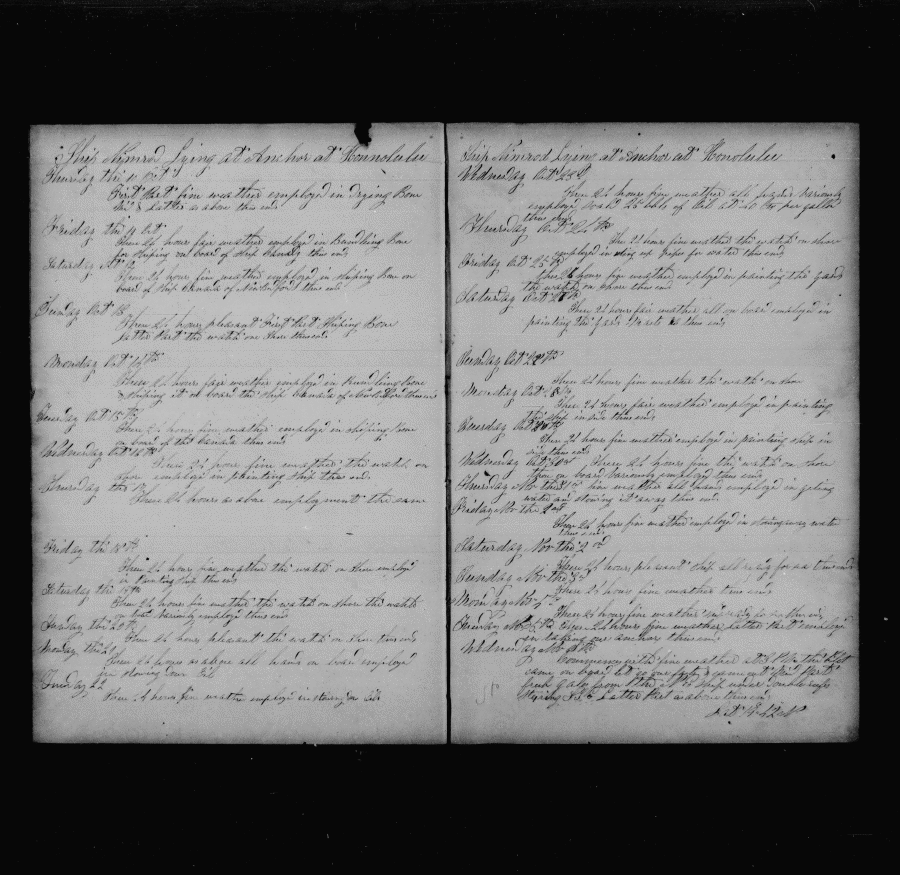 Ship Nimrod Lying at Anchor at Honnolulu
Thursday the Oct
First Part fine weather employed in drying Bone
Latter as above thus ends
Friday the 11 Oct
These 24 hours fair weather employed in Bundling Bone
for shiping on board of Ship thus ends
Saturday
These 24 hours fine weather employed in shiping Bone on
board of Ship Canada of New Bedford thus ends
Sunday Oct 13
These 24 hours pleasant First Part Shiping Bone
Latter Part the watch on shore thus ends
Monday Oct 14th
These 24 hours fair weather employed in Bundling Bone
shiping it on board the Ship Canada of New Bedford thus ends
Tuesday Oct 15th
These 24 hours fine weather employed in shiping Bone
on board of the Canada thus ends
Wednesday Oct 16th
These 24 hours fine weather the watch on
shore employed in painting ship thus ends
Thursday the 17
These 24 hours as above employment the same
Friday the 18th
These 24 hours fine weather the watch on shore employed
in Painting ship thus ends
Saturday the 19th
These 24 hours fine weather the watch on shore the watch
on board variously employed thus ends
Sunday the 20th
These 24 hours pleasant the watch on shore thus ends
Monday the 21
These 24 hours as above all hands on board employed
in stowing our Oil
Tuesday 22
These 24 hours fine weather employed in stowing our Oil
Ship Nimrod Lying at Anchor at Honolulu
Wednesday Oct 23d
These 24 hours fine weather all hands variously
employed sold 25 bbls of Oil at 40 cts per gallon
thus ends
Thursday Oct 24th
These 24 hours fine weather the watch on shore
employed in seting up pipes for water thus ends
Friday Oct 25th
These 24 hours fine weather employed in painting the yards
the watch on shore thus ends
Saturday Oct 26th
These 24 hours fair weather all on board employed in
painting the yards thus ends
Sunday Oct 27th
These 24 hours fine weather the watch on shore
Monday Oct 28
These 24 hours fair weather employed in painting
the ship in side thus ends
Tuesday Oct 29th
These 24 hours fine weather employed in painting ship in
side thus ends
Wednesday Oct 30
These 24 hours fine the watch on shore
them on board variously employed thus ends
Thursday Oct the 31st fine weather all hands employed in geting
water and stowing it away thus ends
Friday Nov the
These 24 hours fine weather employed in stowing away water
thus ends
Saturday Nov the 2nd
These 24 hours pleasant ship all redy for sea thus ends
Sunday Nov the 3d
These 24 hours fine weather thus ends
Monday Nov
These 24 hours fine weather
Tuesday Nov 5th These 24 hours fine weather Latter Part employed
in taking our anchors thus ends
Wednesday Nov 6th
Commences with fine weather at 3 PM the Pilot
came on board
from the ship under double reefs
Latter Part as above thus ends